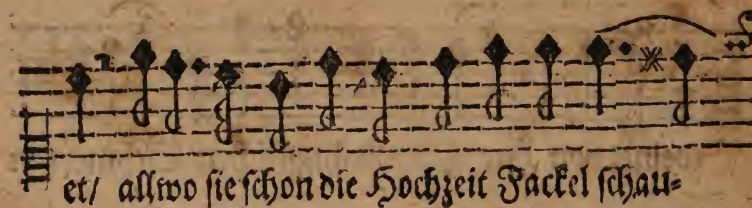 et/ allwo sie schon die Hochzeit Fackel schau-